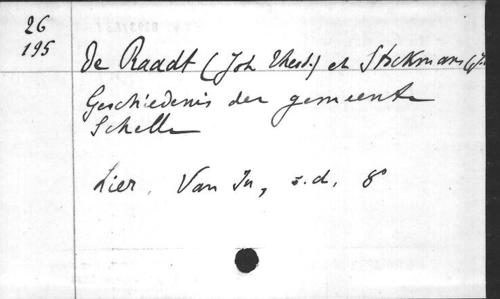 26
195
De Raadt (Joh. Theod.) et Stockmans (J.
Geschiedenis der gemeente
Schelle
Lier, Van In, s.d. 8°